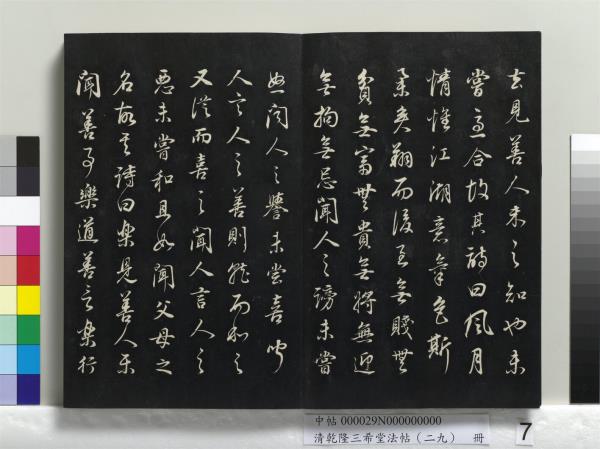 去見善人未之知也未
嘗急合故其詩曰風月
情懷江湖意氣色斯
舉矣翔而後至無賤無
貧無富無貴無將無迎
無拘無忌聞人之謗未嘗
怒聞人之譽未嘗喜聞
人言人之善則就而和之
又從而喜之聞人言人之
惡未嘗和且如聞父母之
名故其詩曰樂見善人樂
聞善事樂道善言樂行
中帖 000029N000000000
清乾隆三希堂法帖（二九） 冊
7